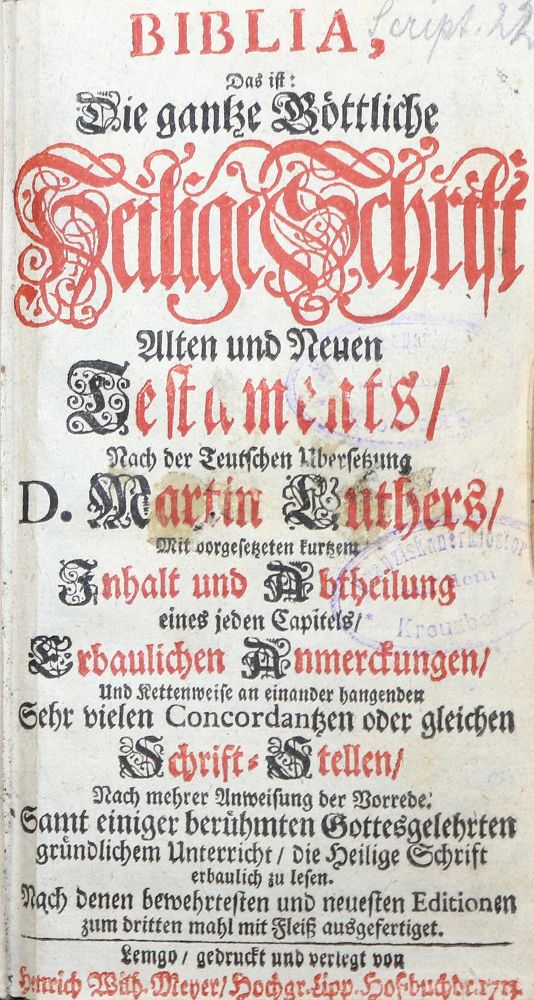 BIBLIA,
Script. 22
Das ist:
Die gantze Göttliche
Heilige Schrift
Alten und Neuen
Testaments/
Nach der Teutschen Ubersetzung
D. Martin Luthers/
Mit vorgesetzeten kurtzem
Inhalt und Abtheilung
eines jeden Capitels/
Erbaulichen Anmerckungen/
Und Kettenweise an einander hangenden
Sehr vielen Concordantzen oder gleichen
Schrift-Stellen/
Nach mehrer Anweisung der Vorrede.
Samt einiger berühmten Gottesgelehrten
gründlichem Unterricht/ die Heilige Schrift
erbaulich zu lesen.
Nach denen bewehrtesten und neuesten Editionen
zum dritten mahl mit Fleiß ausgefertiget.
Lemgo/ gedruckt und verlegt von
Henrich Wilh. Meyer/ Hochgr. Lipp. Hofbuchdr.
Franziskanerkloster
dem